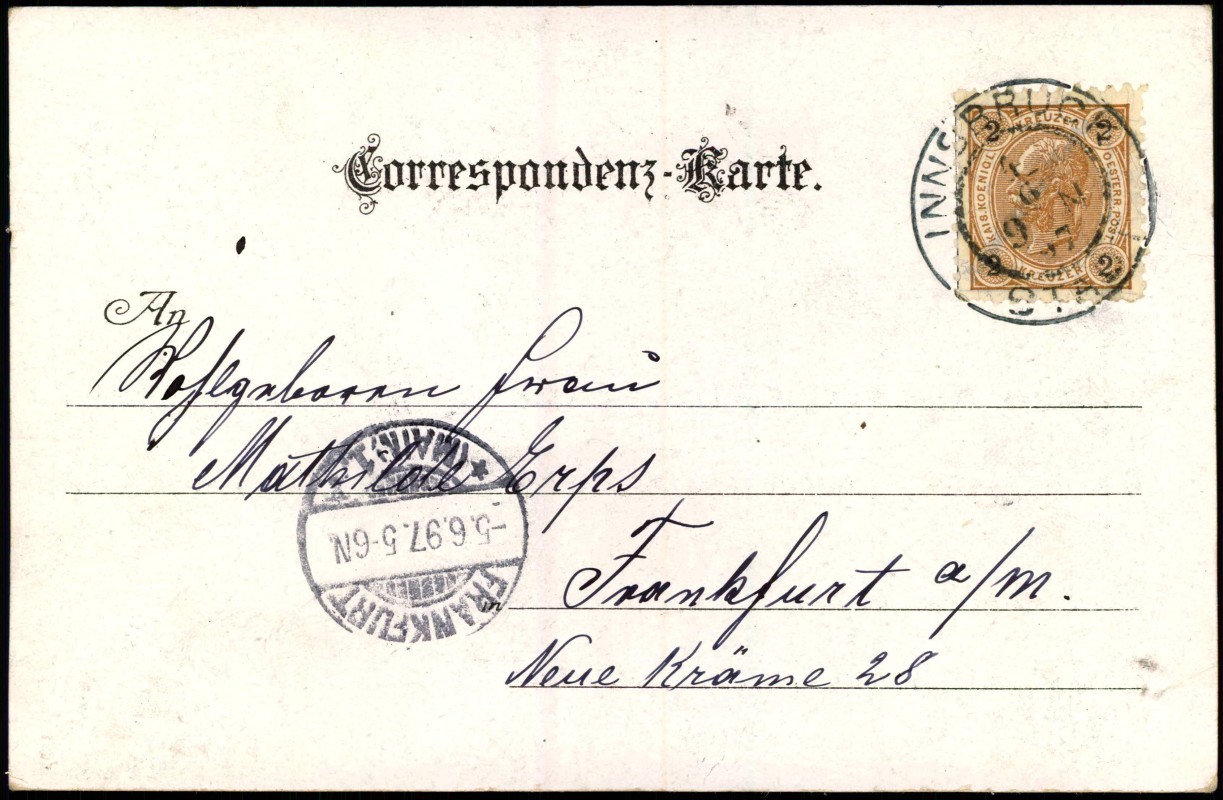 Correspondenz-Karte.
INNSBRUCK
2 KREUZER 2
KAIS. KOENIGL.
OESTERR. POST
2 KREUZER 2
An
Wohlgeboren Frau
Mathilde Erps
FRANKFURT
-5.6.97. 5-6N
(MAIN) 1
in Frankfurt a/M.
Neue Kräme 28